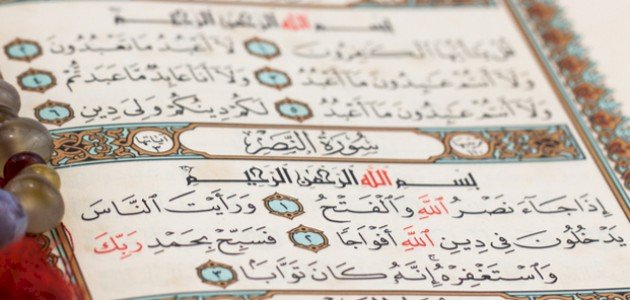 بِسْمِ اللَّهِ الرَّحْمَٰنِ الرَّحِيمِ
قُلْ يَا أَيُّهَا الْكَافِرُونَ ١ لَا أَعْبُدُ مَا تَعْبُدُونَ ٢
وَلَا أَنتُمْ عَابِدُونَ مَا أَعْبُدُ ٣ وَلَا أَنَا عَابِدٌ مَّا عَبَدتُّمْ ٤
وَلَا أَنتُمْ عَابِدُونَ مَا أَعْبُدُ ٥ لَكُمْ دِينُكُمْ وَلِيَ دِينِ ٦
سُورَةُ النَّصْرِ
بِسْمِ اللَّهِ الرَّحْمَٰنِ الرَّحِيمِ
إِذَا جَاءَ نَصْرُ اللَّهِ وَالْفَتْحُ ١ وَرَأَيْتَ النَّاسَ
يَدْخُلُونَ فِي دِينِ اللَّهِ أَفْوَاجًا ٢ فَسَبِّحْ بِحَمْدِ رَبِّكَ
وَاسْتَغْفِرْهُ إِنَّهُ كَانَ تَوَّابًا ٣